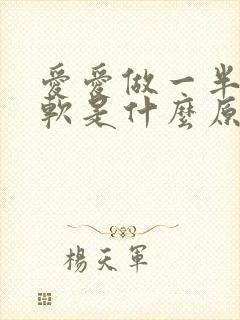 愛愛做一半
軟是什麼原
楊天軍